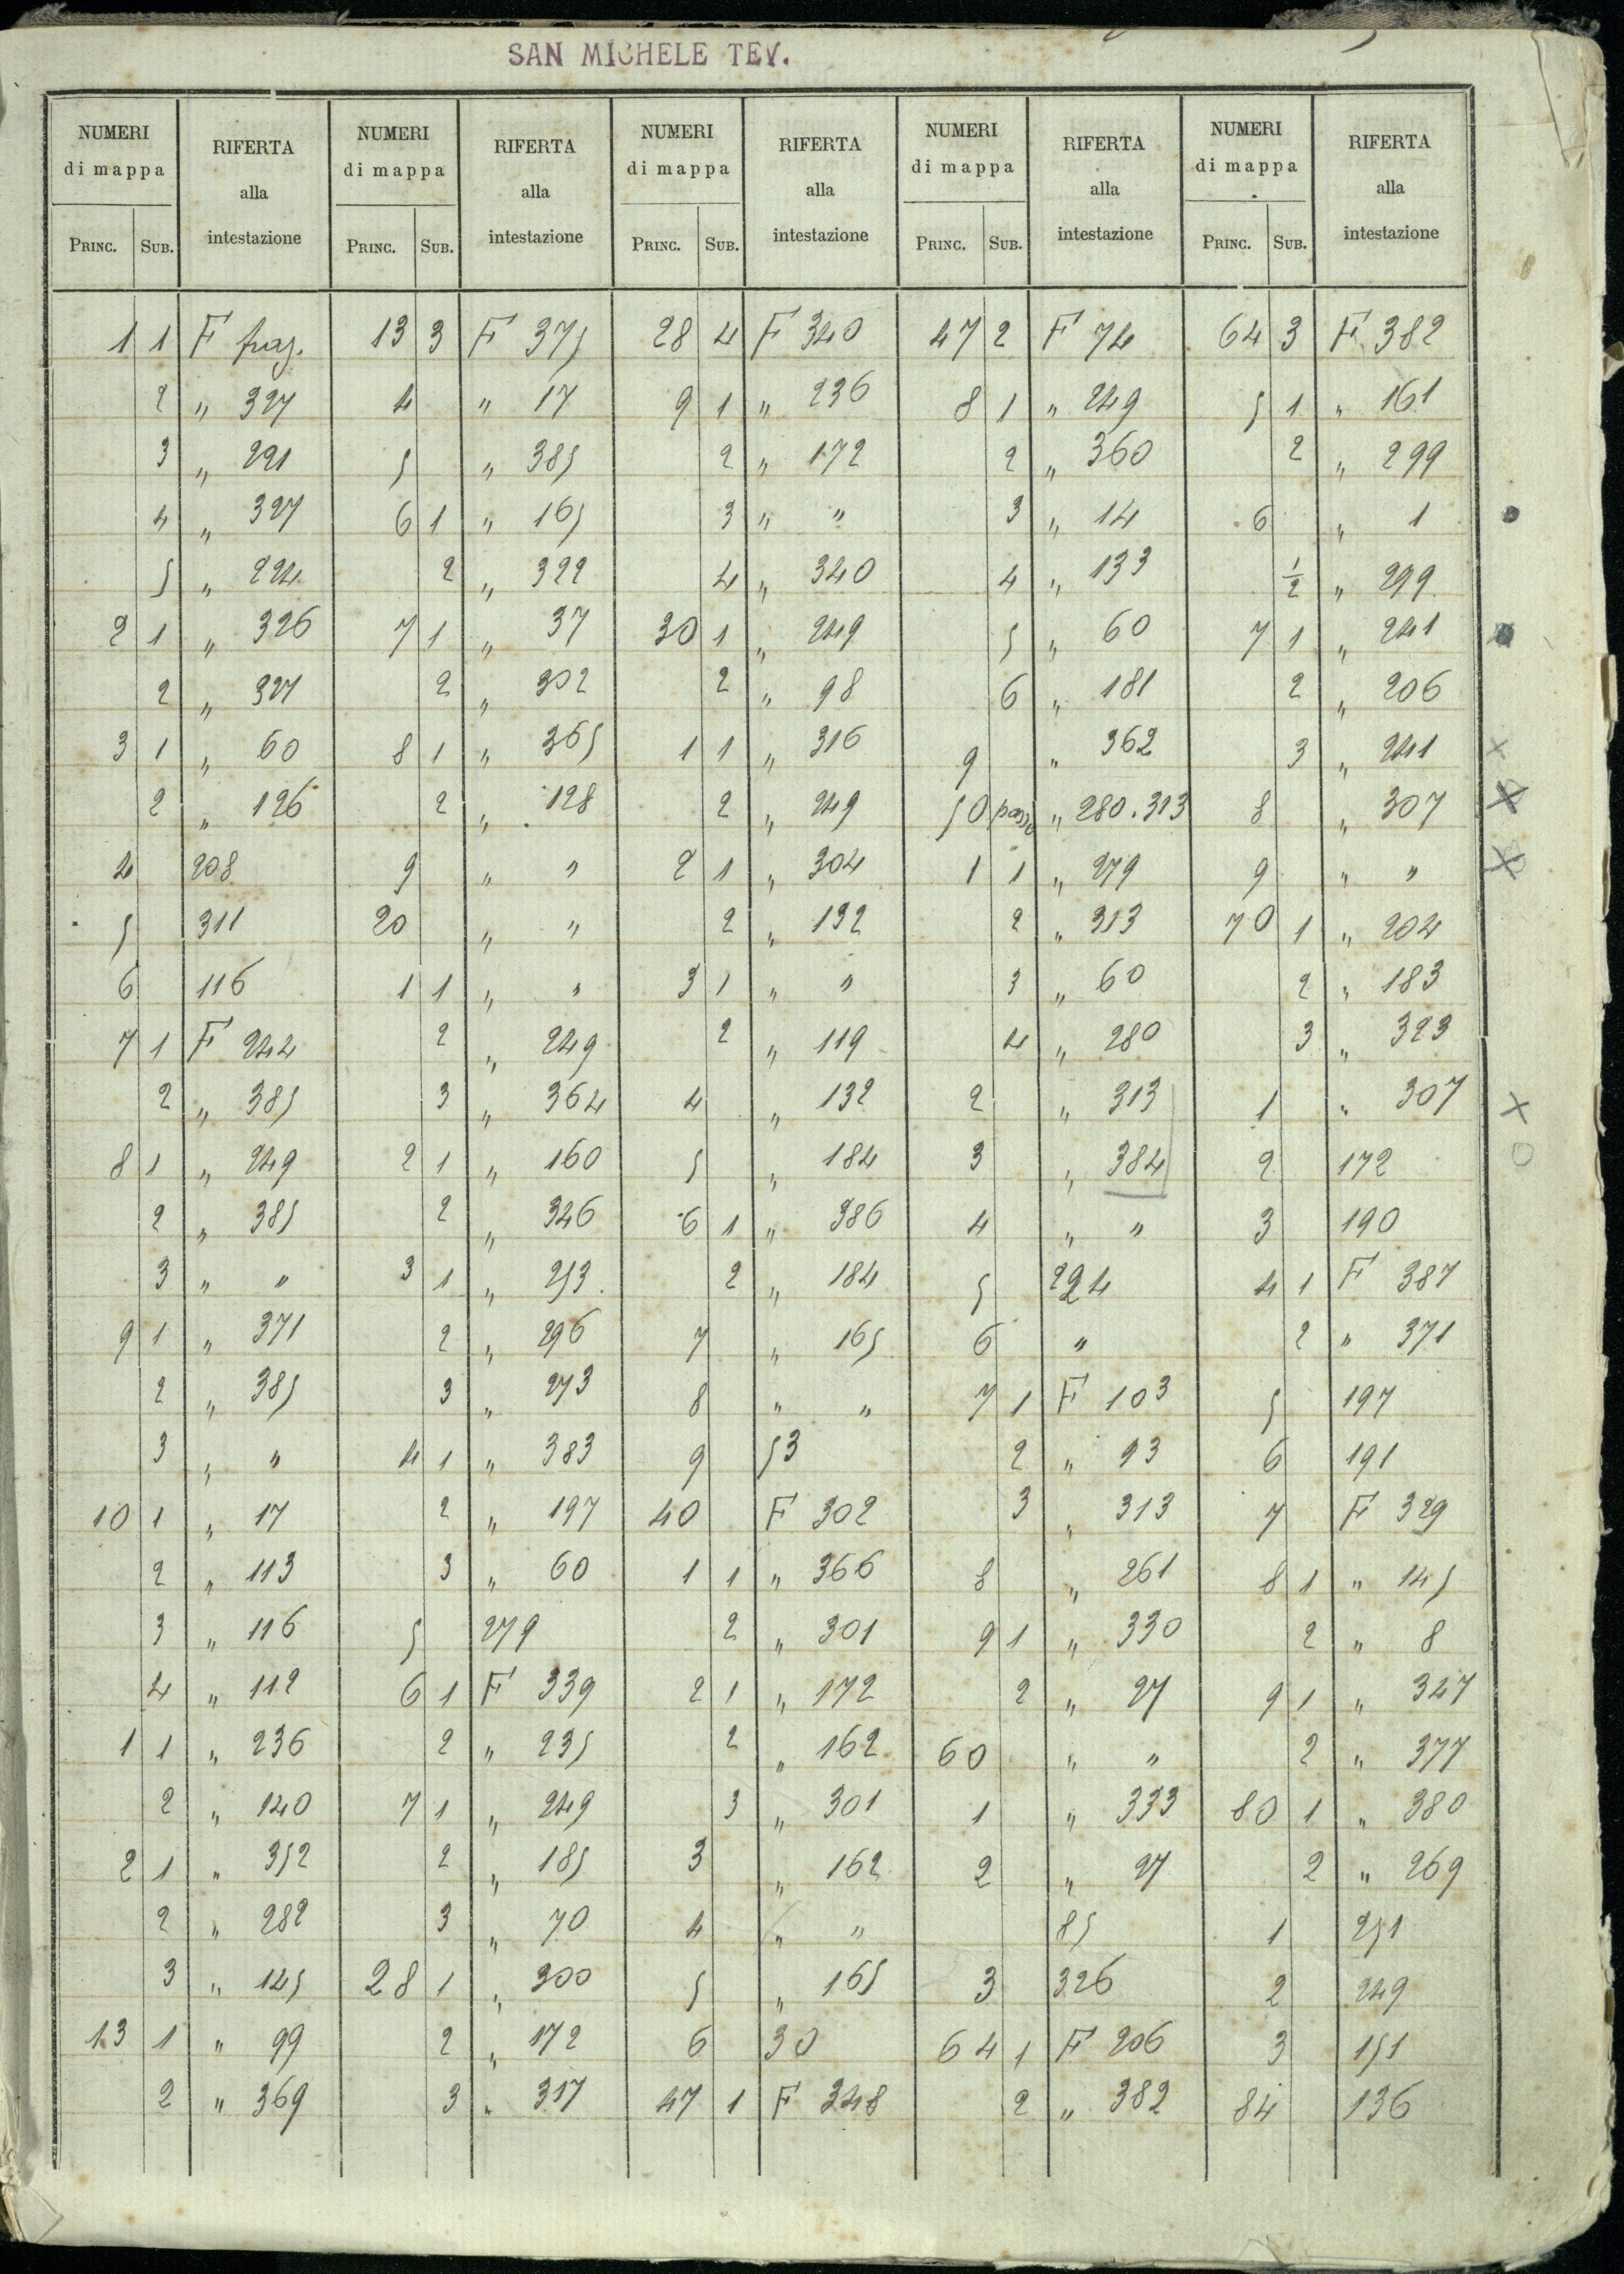 SAN MICHELE TEV.
NUMERI di mappa RIFERTA alla intestazione NUMERI di mappa RIFERTA alla intestazione NUMERI di mappa RIFERTA alla intestazione NUMERI di mappa RIFERTA alla intestazione NUMERI di mappa RIFERTA alla intestazione
PRINC. SUB. PRINC. SUB. PRINC. SUB. PRINC. SUB. PRINC. SUB.
1 1 F fraz. 13 3 F 375 28 4 F 340 47 2 F 74 64 3 F 382
2 " 327 4 " 17 9 1 " 236 8 1 " 249 5 1 " 161
3 " 221 5 " 385 2 " 172 2 " 360 2 " 299
4 " 327 6 1 " 165 3 " " 3 " 14 6 " 1
5 " 224 2 " 322 4 " 340 4 " 133 1/2 " 299
2 1 " 326 7 1 " 37 30 1 " 249 5 " 60 7 1 " 241
2 " 327 2 " 302 2 " 98 6 " 181 2 " 206
3 1 " 60 8 1 " 365 1 1 " 316 9 " 362 3 " 241
2 " 126 2 " 128 2 " 249 50 " 280.313 8 " 307
4 208 9 " " 2 1 " 304 1 1 " 279 9 " "
5 311 20 " " 2 " 132 2 " 313 70 1 " 204
6 116 1 1 " " 3 1 " " 3 " 60 2 " 183
7 1 F 244 2 " 249 2 " 119 4 " 280 3 " 323
2 " 385 3 " 364 4 " 132 2 " 313 1 " 307
8 1 " 249 2 1 " 160 5 " 184 3 " 384 2 172
2 " 385 2 " 346 6 1 " 386 4 " " 3 190
3 " " 3 1 " 253 2 " 184 5 224 4 1 F 387
9 1 " 371 2 " 296 7 " 165 6 " 2 " 371
2 " 385 3 " 273 8 " " 7 1 F 103 5 197
3 " " 4 1 " 383 9 53 2 " 93 6 191
10 1 " 17 2 " 197 40 F 302 3 " 313 7 F 329
2 " 113 3 " 60 1 1 " 366 8 " 261 8 1 " 145
3 " 116 5 279 2 " 301 9 1 " 330 2 " 8
4 " 112 6 1 F 339 2 1 " 172 2 " 27 9 1 " 347
1 1 " 236 2 " 235 2 " 162 60 " " 2 " 377
2 " 140 7 1 " 249 3 " 301 1 " 333 80 1 " 380
2 1 " 352 2 " 185 3 " 162 2 " 27 2 " 269
2 " 282 3 " 70 4 " " 85 1 251
3 " 145 28 1 " 300 5 " 165 3 326 2 249
13 1 " 99 2 " 172 6 30 64 1 F 206 3 151
2 " 369 3 " 317 47 1 F 348 2 " 382 84 136